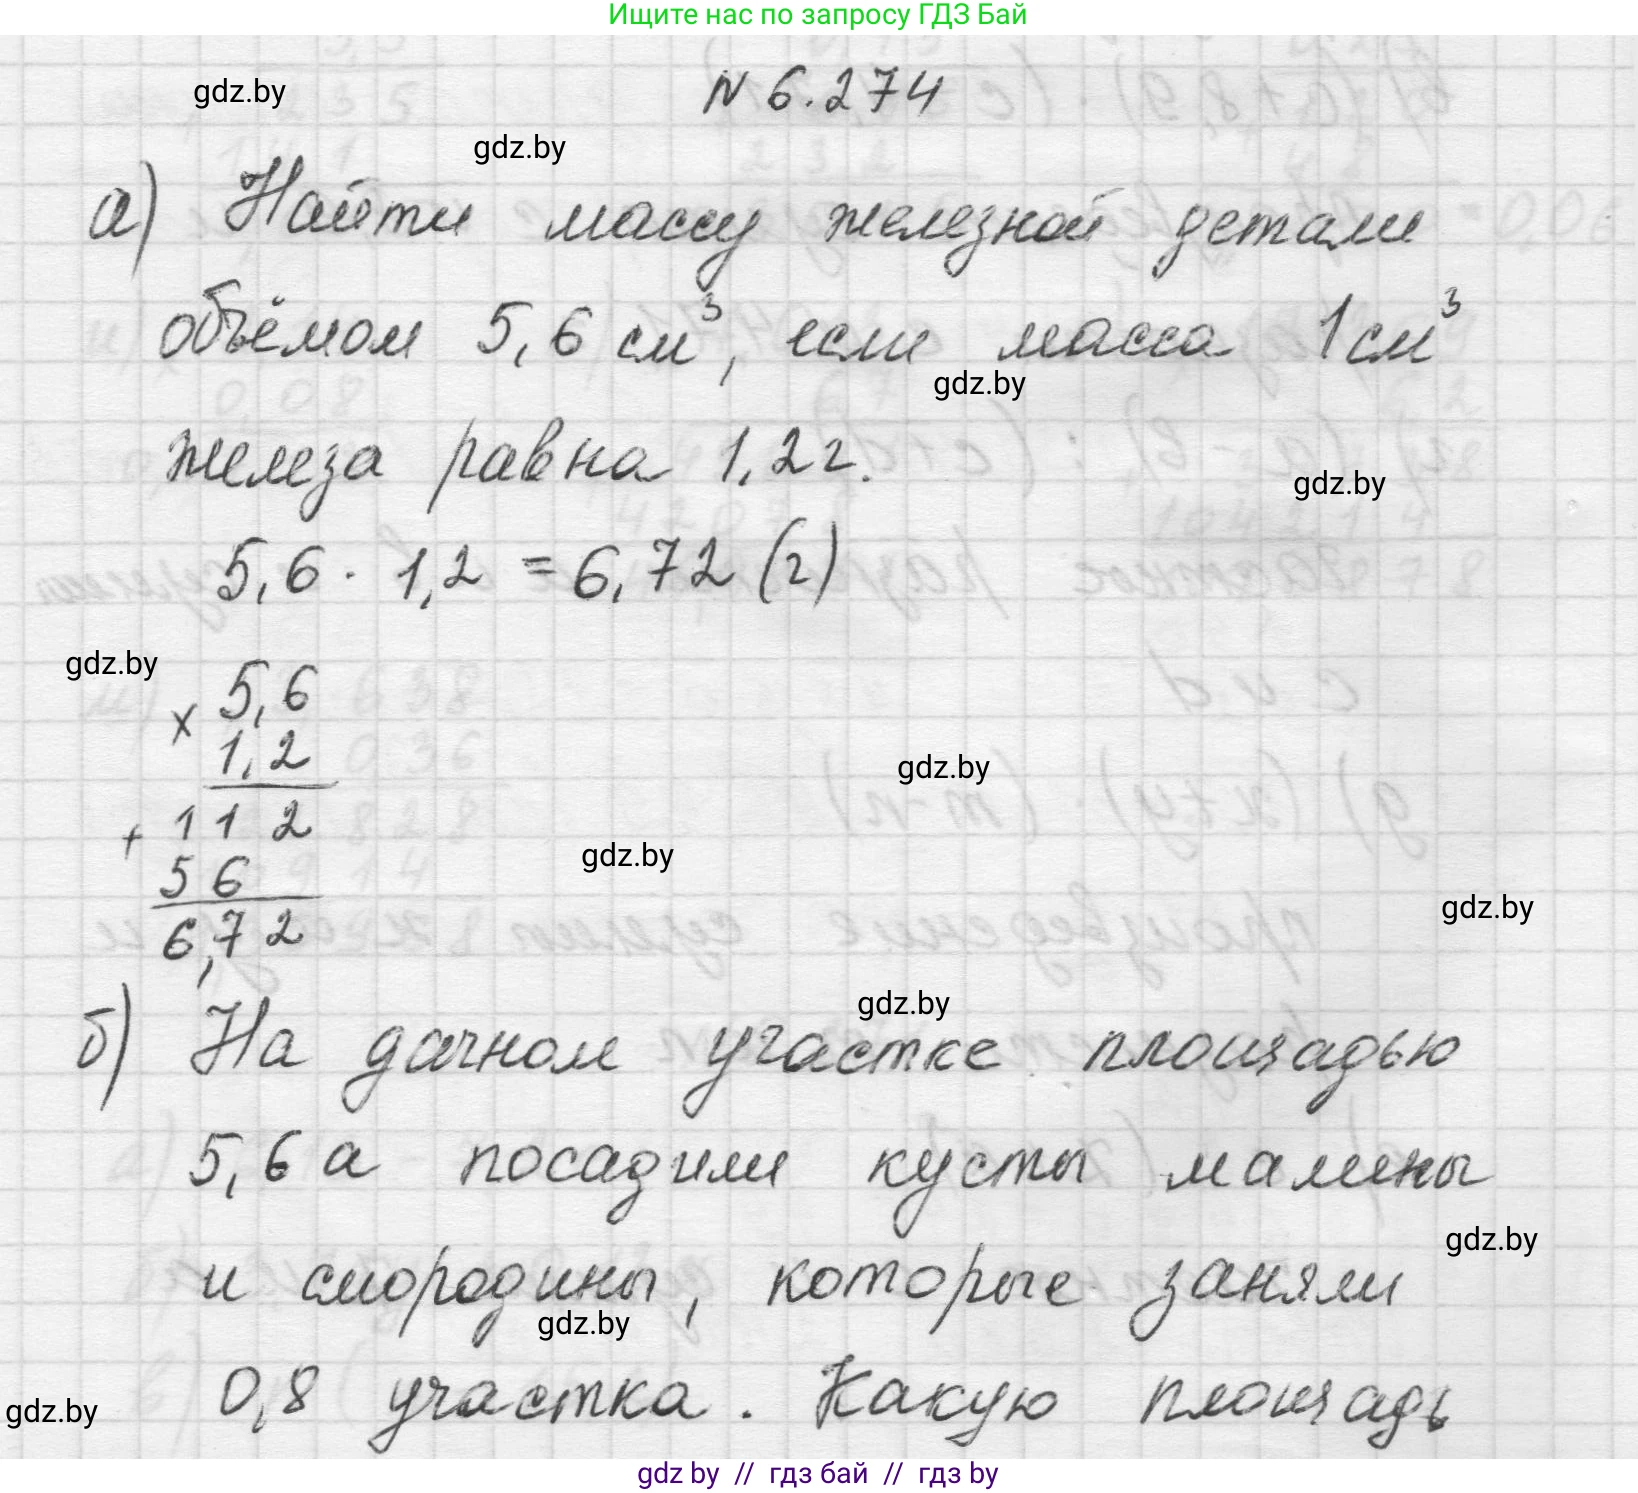 Ищите нас по запросу ГДЗ Бай
N 6.274
gdz.by
gdz.by
а) Найти массу железной детали
объёмом 5,6 см³, если масса 1 см³
gdz.by
железа равна 1,2 г.
gdz.by
5,6 · 1,2 = 6,72 (г)
gdz.by
× 5,6
1,2
gdz.by
+ 112
gdz.by
56
gdz.by
6,72
gdz.by
б) На дачном участке площадью
5,6 а посадили кусты малины
gdz.by
и смородины, которые заняли
gdz.by
0,8 участка. Какую площадь
gdz.by
gdz by // гдз бай // гдз by